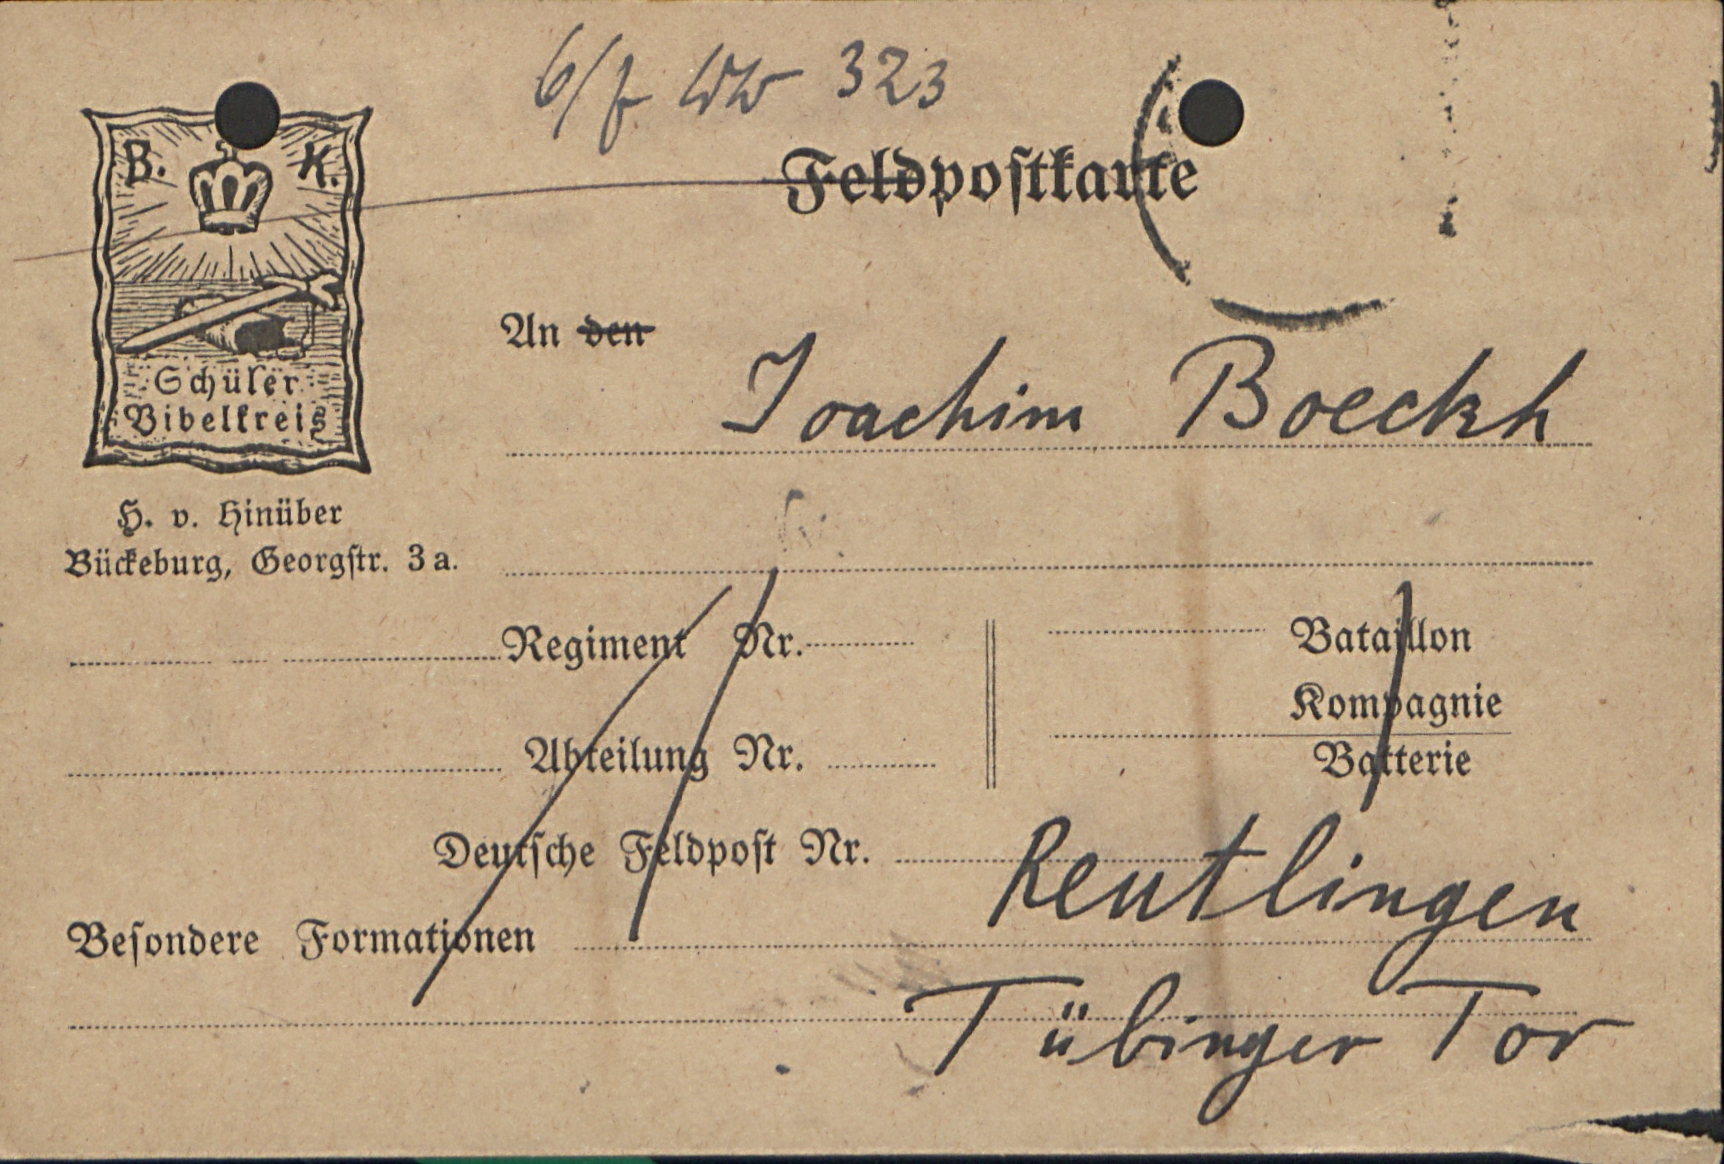 323
Feldpostkarte
B. K.
Schüler
Bibelkreis
H. v. Hinüber
Bückeburg, Georgstr. 3 a.
An den
Joachim Boeckh
Regiment Nr.
Bataillon
Kompagnie
Abteilung Nr.
Batterie
Deutsche Feldpost Nr.
Reutlingen
Besondere Formationen
Tübinger Tor